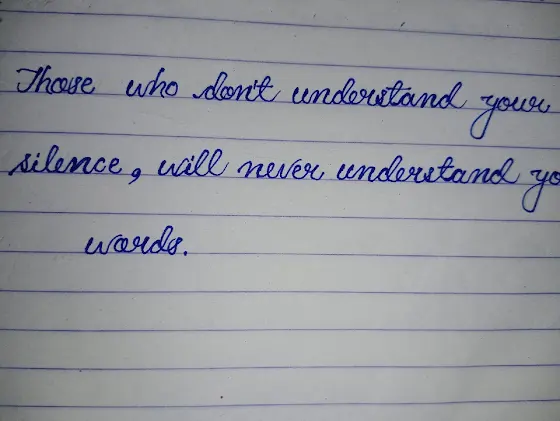 Those who don't understand your
silence, will never understand yo
words.